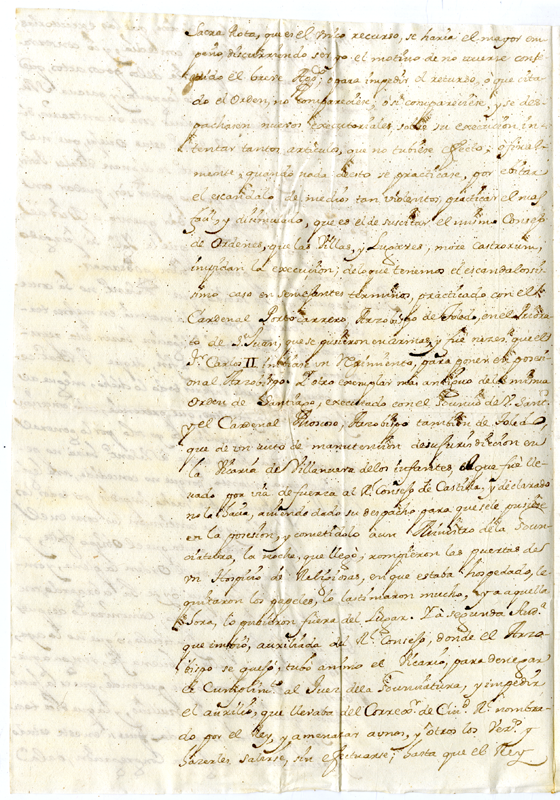 Sacra Rota, que es el unico recurso, se haria el mayor em
peño discurriendo ser este el motivo de no averse conse
guido el breve
para impedir el recurso, o que cita
do el Orden, no compareciese; o si compareciese, y se des
pachasen nuevos executoriales sobre su execucion in
tentar tantos articulos, que no tubiese efecto; o final
mente, quando nada de esto se practicase, por evitar
el escandalo de medios tan violentos, practicar el mas
y disimulado, que es el de suscitar el mismo Consejo
de Ordenes, que las Villas, y Lugares, more Castrorum,
impidan la execucion; de lo que tenemos el escandalosis
simo caso en semejantes terminos, practicado con el
Cardenal Portocarrero, Arzobispo de Toledo, en el Priora
to de Sn. Juan, que se pusieron en armas, y fue necesso. que el
Sr. Carlos II. imbiase un Regimiento, para poner en posesion
al Arzobispo. Y otro exemplar mas antiguo de la misma
Orden de Santiago, executado con el Nuncio de Su Santd.
y el Cardenal Arzobispo tambien de Toledo
que de un auto de manutencion de su jurisdiccion en
la Vicaria de Villanueva de los infantes que fue lle
vado por via de fuerza al Rl. Consejo de Castilla, y declarado
no la hacia, aviendo dado su despacho para que se le pusiese
en la posesion, y cometidolo a un Ministro de la Nun
ciatura, la noche, que llegò; rompieron las puertas de
un Hospicio de Religiosas, en que estaba hospedado, le
quitaron los papeles, lo lastimaron mucho, y a aquella
hora, lo pusieron fuera del Lugar. Y a segunda
que imbiò, auxiliada del Rl. Consejo, donde el Arzo
bispo se quejò, tubo animo el Vicario, para denegar
el Cumplimto. al Juez de la Nunciatura, y impedir
el auxilio, que llevaba del Correxor. de Ciud. Rl. nombra
do por el Rey, y amenazar a unos, y otros los Vezs. y
hazerles salirse, sin efectuarse; hasta que el Rey